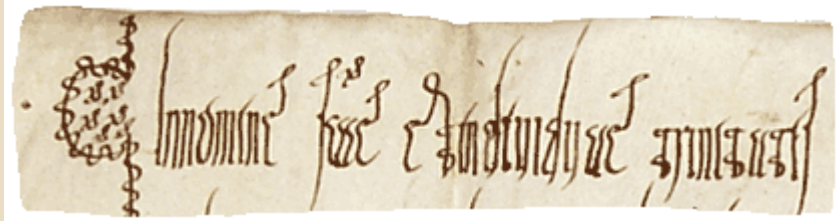 In nomine sce et individue trinitatis